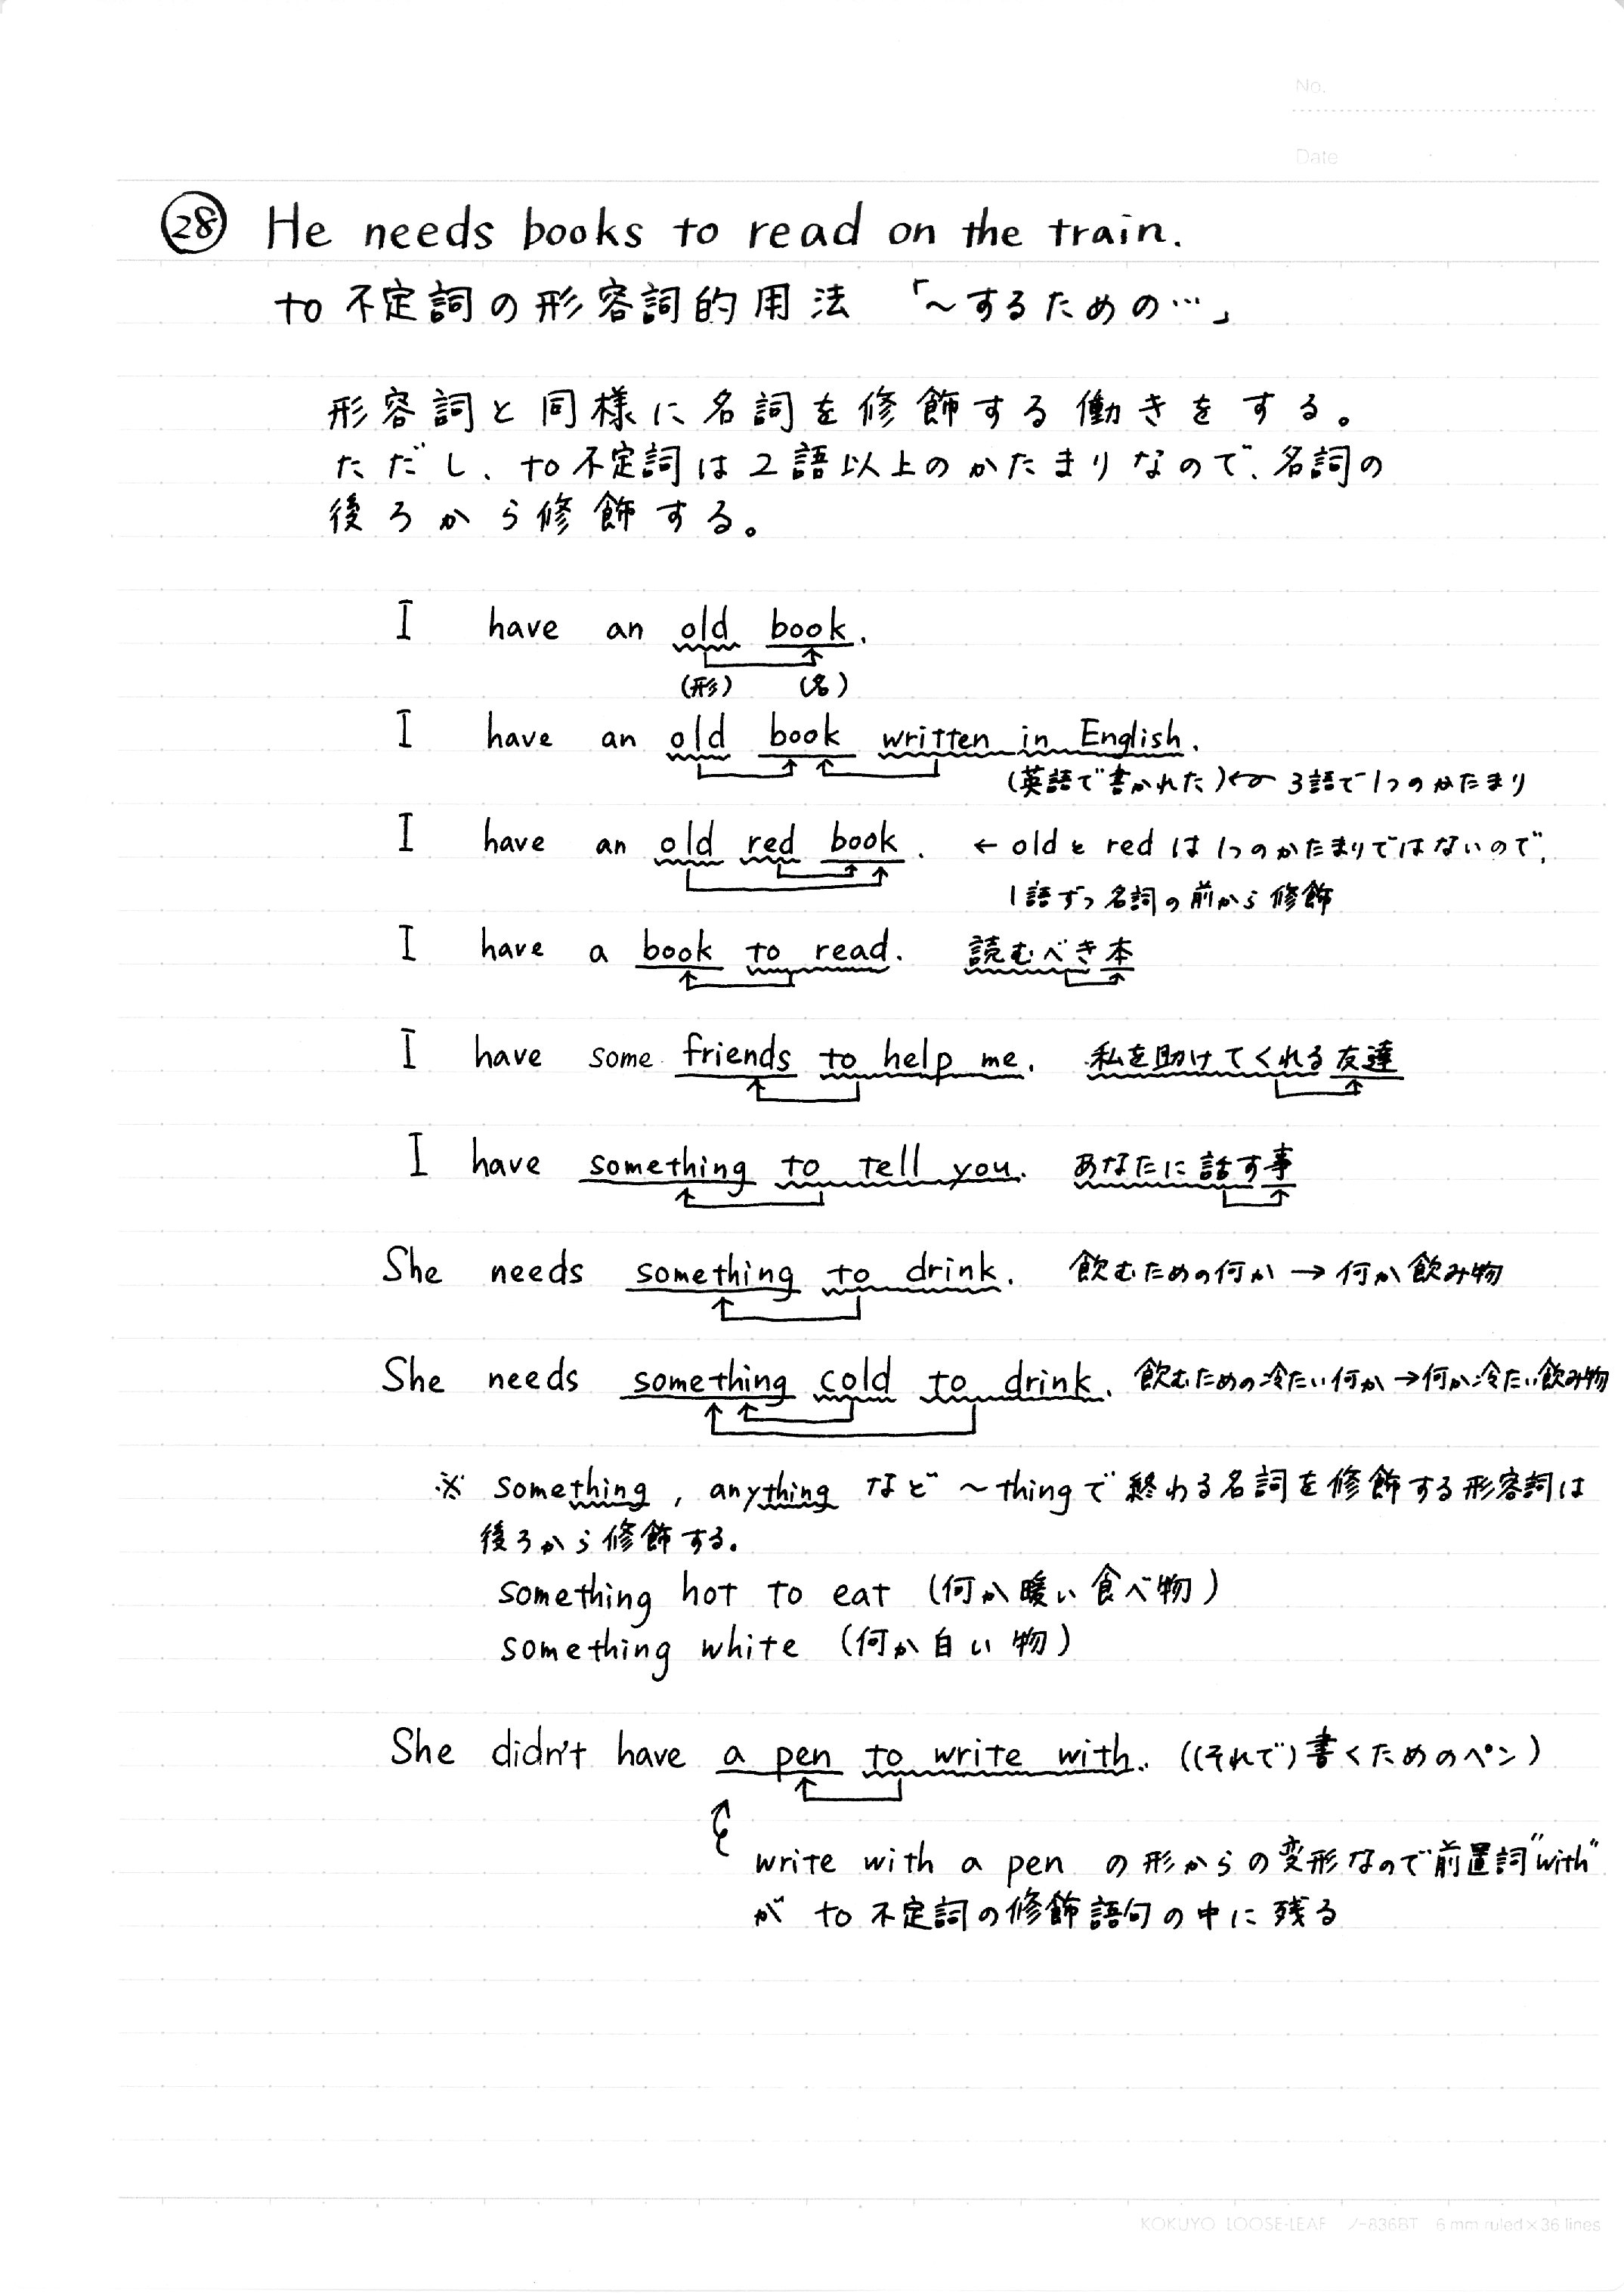 No.
Date
㉘ He needs books to read on the train.
to 不定詞の形容詞的用法 「～するための…」
形容詞と同様に名詞を修飾する働きをする。
ただし、to不定詞は2語以上のかたまりなので、名詞の
後ろから修飾する。
I have an old book.
(形) (名)
I have an old book written in English.
(英語で書かれた)← 3語で1つのかたまり
I have an old red book. ← oldとredは1つのかたまりではないので、
1語ずつ名詞の前から修飾
I have a book to read. 読むべき本
I have some friends to help me. 私を助けてくれる友達
I have something to tell you. あなたに話す事
She needs something to drink. 飲むための何か → 何か飲み物
She needs something cold to drink. 飲むための冷たい何か→何か冷たい飲み物
※ something, anything など ～thingで終わる名詞を修飾する形容詞は
後ろから修飾する。
something hot to eat (何か暖い食べ物)
something white (何か白い物)
She didn't have a pen to write with. ((それで)書くためのペン)
write with a pen の形からの変形なので前置詞"with"
が to 不定詞の修飾語句の中に残る
KOKUYO LOOSE-LEAF ノ-836BT 6 mm ruled×36 lines